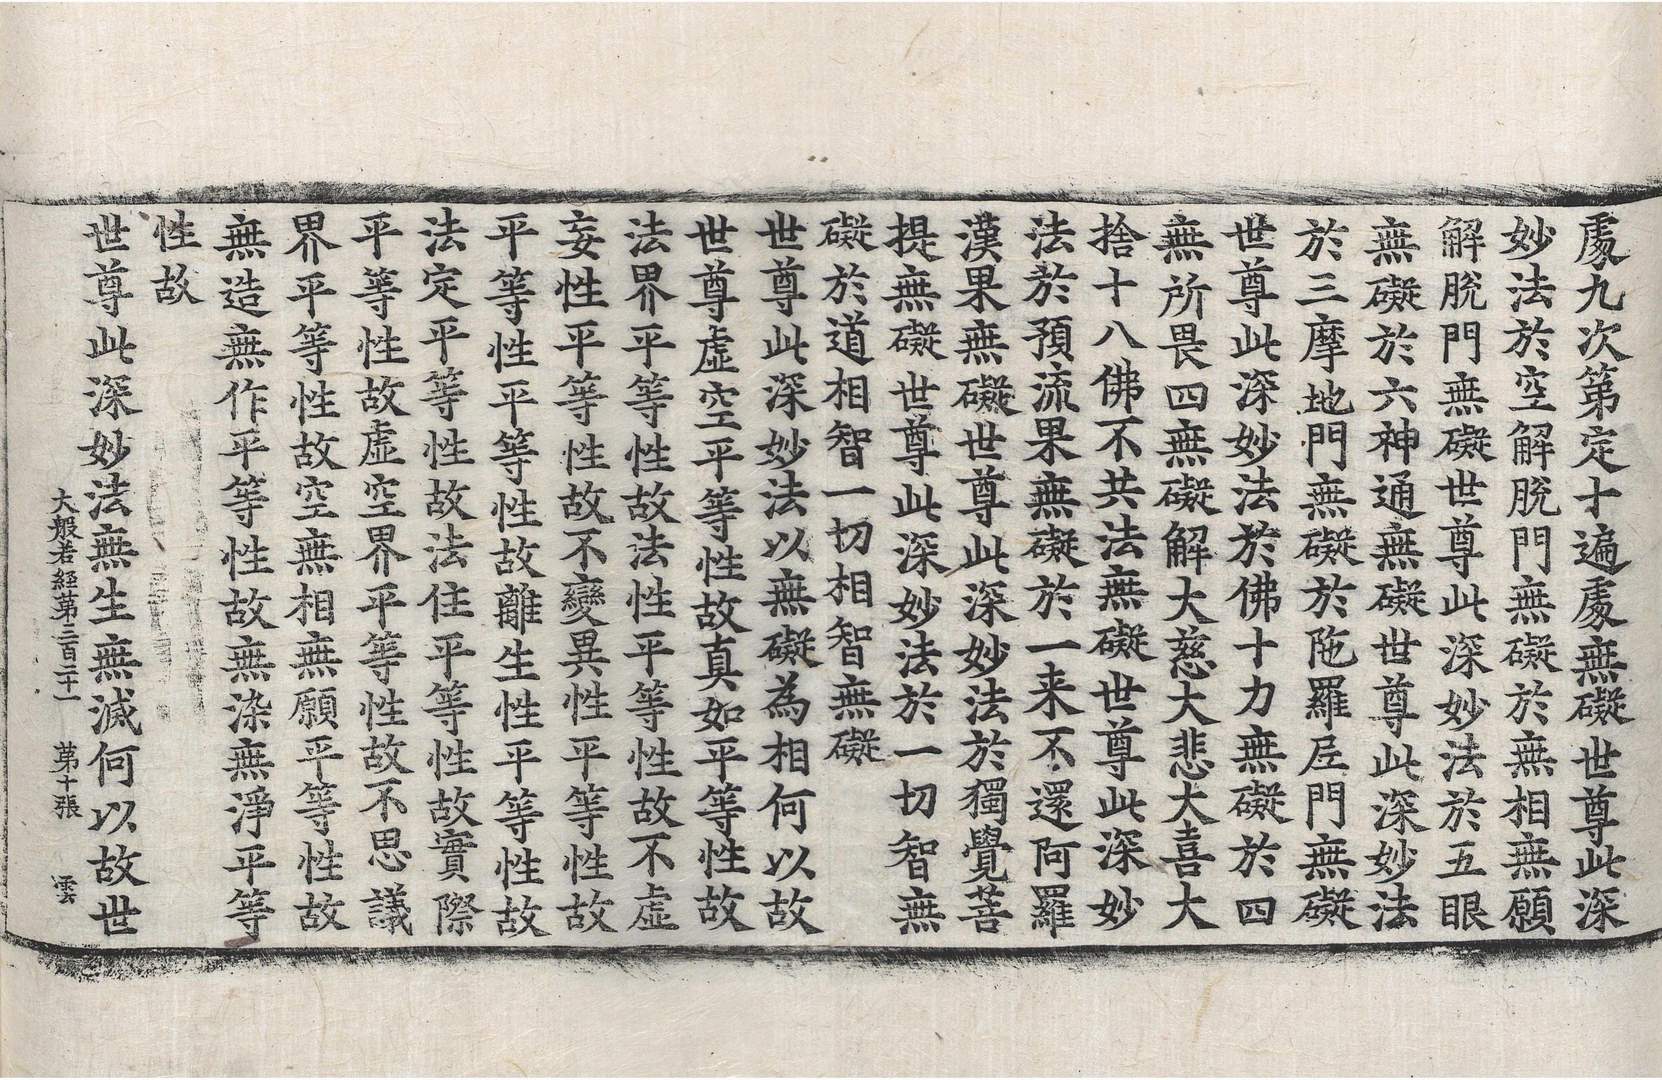 處九次第定十遍處無礙世尊此深
妙法於空解脫門無礙於無相無願
解脫門無礙世尊此深妙法於五眼
無礙於六神通無礙世尊此深妙法
於三摩地門無礙於陁羅尼門無礙
世尊此深妙法於佛十力無礙於四
無所畏四無礙解大慈大悲大喜大
捨十八佛不共法無礙世尊此深妙
法於預流果無礙於一来不還阿羅
漢果無礙世尊此深妙法於獨覺菩
提無礙世尊此深妙法於一切智無
礙於道相智一切相智無礙
世尊此深妙法以無礙為相何以故
世尊虛空平等性故真如平等性故
法界平等性故法性平等性故不虛
妄性平等性故不變異性平等性故
平等性平等性故離生性平等性故
法定平等性故法住平等性故實際
平等性故虛空界平等性故不思議
界平等性故空無相無願平等性故
無造無作平等性故無染無淨平等
性故
世尊此深妙法無生無滅何以故世
大般若経第三百二十一 第十張 雲